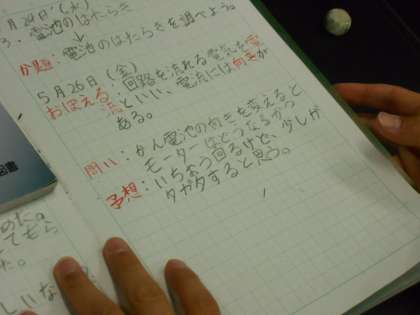 月24日(火)
3.電池のはたらき
↓
か題:電池のはたらきを調べよう。
5月26日(金)
おぼえる:回路を流れる電気を電
流といい、電流には向きが
ある。
問い:かん電池の向きを変えると
モーターはどうなるか。
予想:いちおう回るけど、少しガ
タガタすると思う。
のた。
てもら
た。
しいな
図書